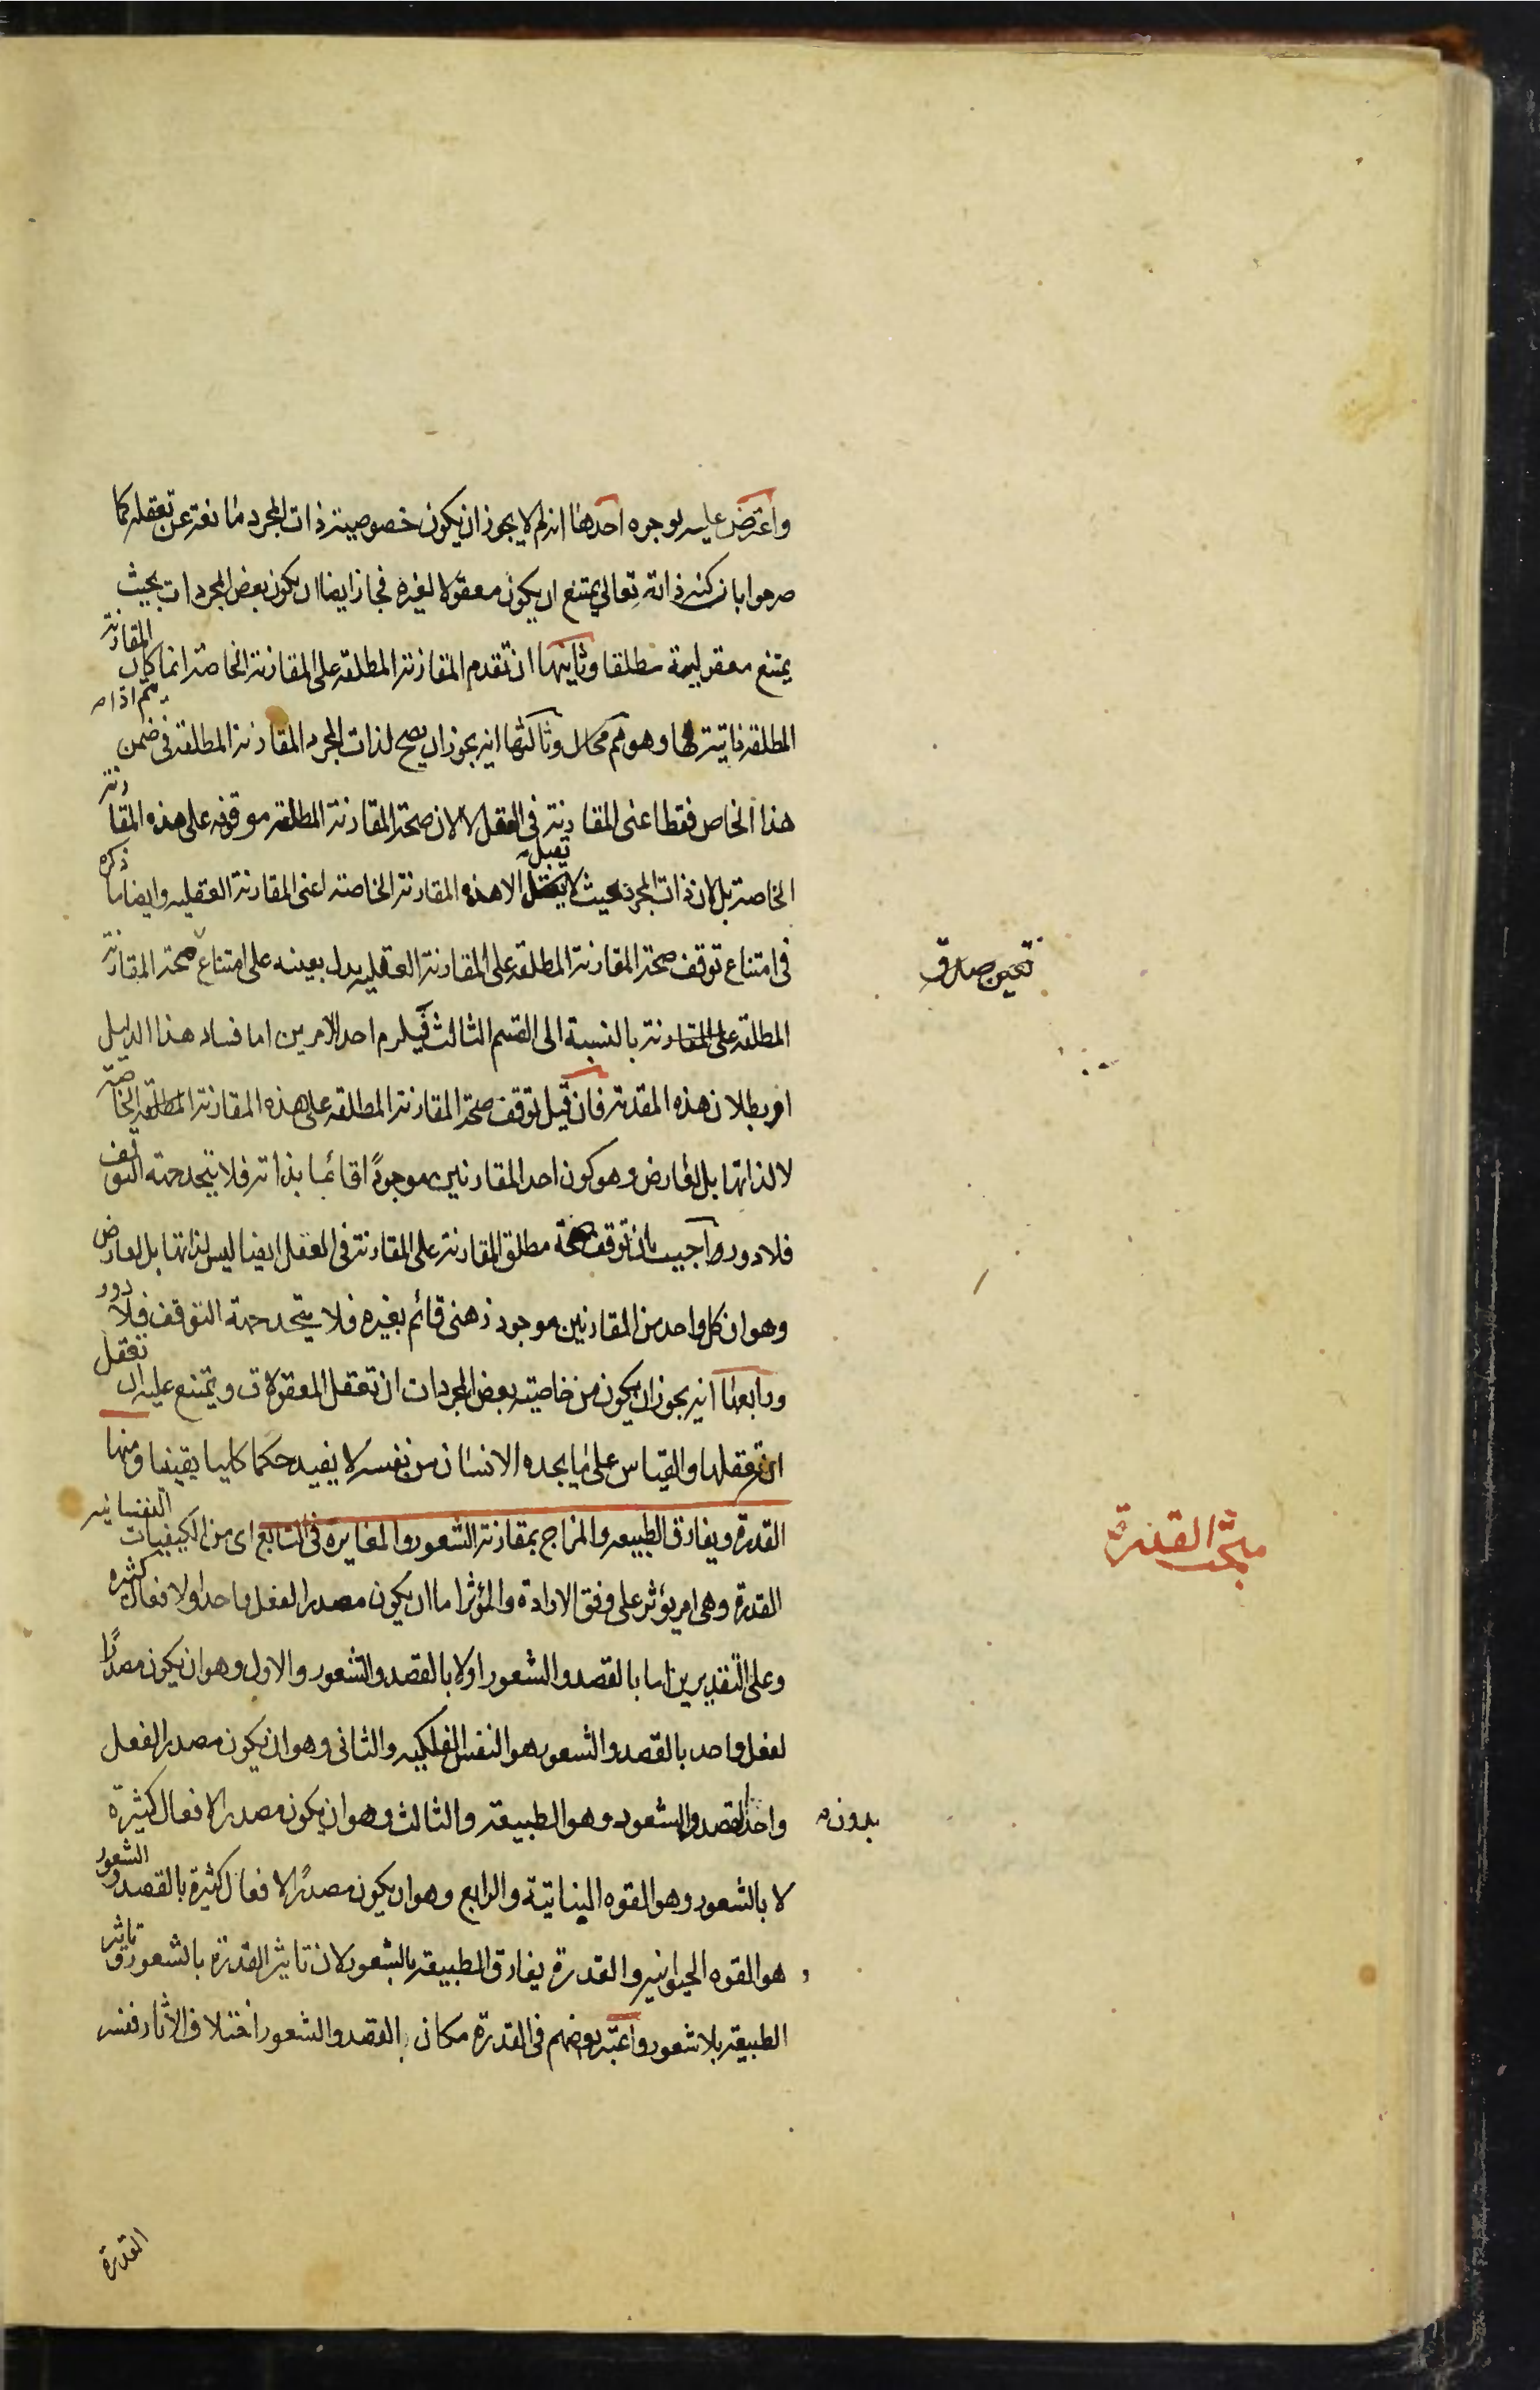 واعترض عليه بوجوه احدها انه لم لا يجوز ان يكون خصوصية ذات المجرد مانعة عن تعقله كما
صرحوا بان كنه ذاته تعالى يمتنع ان يكون معقولا لغيره فجاز ايضا ان يكون بعض المجردات بحيث
يمتنع معقوليته مطلقا وثانيها ان تقدم المقارنة المطلقة على المقارنة الخاصة انما كان المقارنة
يتم اذا
المطلقة ذاتية لها وهو مم محال وثالثها انه يجوز ان يصح لذات المجرد المقارنة المطلقة في ضمن
هذا الخاص فقط اعنى المقارنة في العقل لا لان صحة المقارنة المطلقة موقوفه على هذه المقارنة
الخاصة بل لان ذات المجرد بحيث لا تقبل الا هذه المقارنة الخاصة اعنى المقارنة العقليه وايضا ما ذكره
في امتناع توقف صحة المقارنة المطلقة على المقارنة العقليه يدل بعينه على امتناع صحة المقارنة
تعين صارف
المطلقة على المقارنة بالنسبة الى القسم الثالث فيلزم احد الامرين اما فساد هذا الدليل
او بطلان هذه المقدمة فان قيل توقف صحة المقارنة المطلقة على هذه المقارنة المطلقة الخاصة
لا لذاتها بل لعارض وهو كون احد المقارنين موجودًا قائما بذاته فلا يتحد جهة التوقف
فلا دور واجيب بان توقف صحة مطلق المقارنة على المقارنة في العقل ايضا ليس لذاتها بل لعارض
وهو ان كل واحد من المقارنين موجود ذهنى قائم بغيره فلا يتحد جهة التوقف فلا دور
ورابعها انه يجوز ان يكون من خاصية بعض المجردات ان تعقل المعقولات ويمتنع عليه ان تعقل
انه تعقلها والقياس على ما يجده الانسان من نفسه لا يفيد حكما كليا يقينا ومنها
القدرة ويفارق الطبيعه والمزاج بمقارنة الشعور والمغايرة في التابع اى من الكيفيات النفسانيه
مبحث القدرة
القدرة وهى امر يؤثر على وفق الارادة والمؤثر اما ان يكون مصدرا لفعل واحد او لافعال كثيره
وعلى التقديرين اما بالقصد والشعور اولا بالقصد والشعور والاول وهو ان يكون مصدرًا
لفعل واحد بالقصد والشعور هو النفس الفلكيه والثانى وهو ان يكون مصدرا لفعل
واحد بدون القصد والشعور وهو الطبيعة والثالث وهو ان يكون مصدرا لافعال كثيرة
لا بالشعور وهو القوه النباتية والرابع وهو ان يكون مصدرًا لافعال كثيرة بالقصد والشعور
هو القوه الحيوانيه والقدرة يفارق الطبيعة بالشعور لان تاثير القدرة بالشعور وتاثير
الطبيعة بلا شعور واعتبر بعضهم في القدرة مكان القصد والشعور اختلاف الآثار ففسر
القدرة